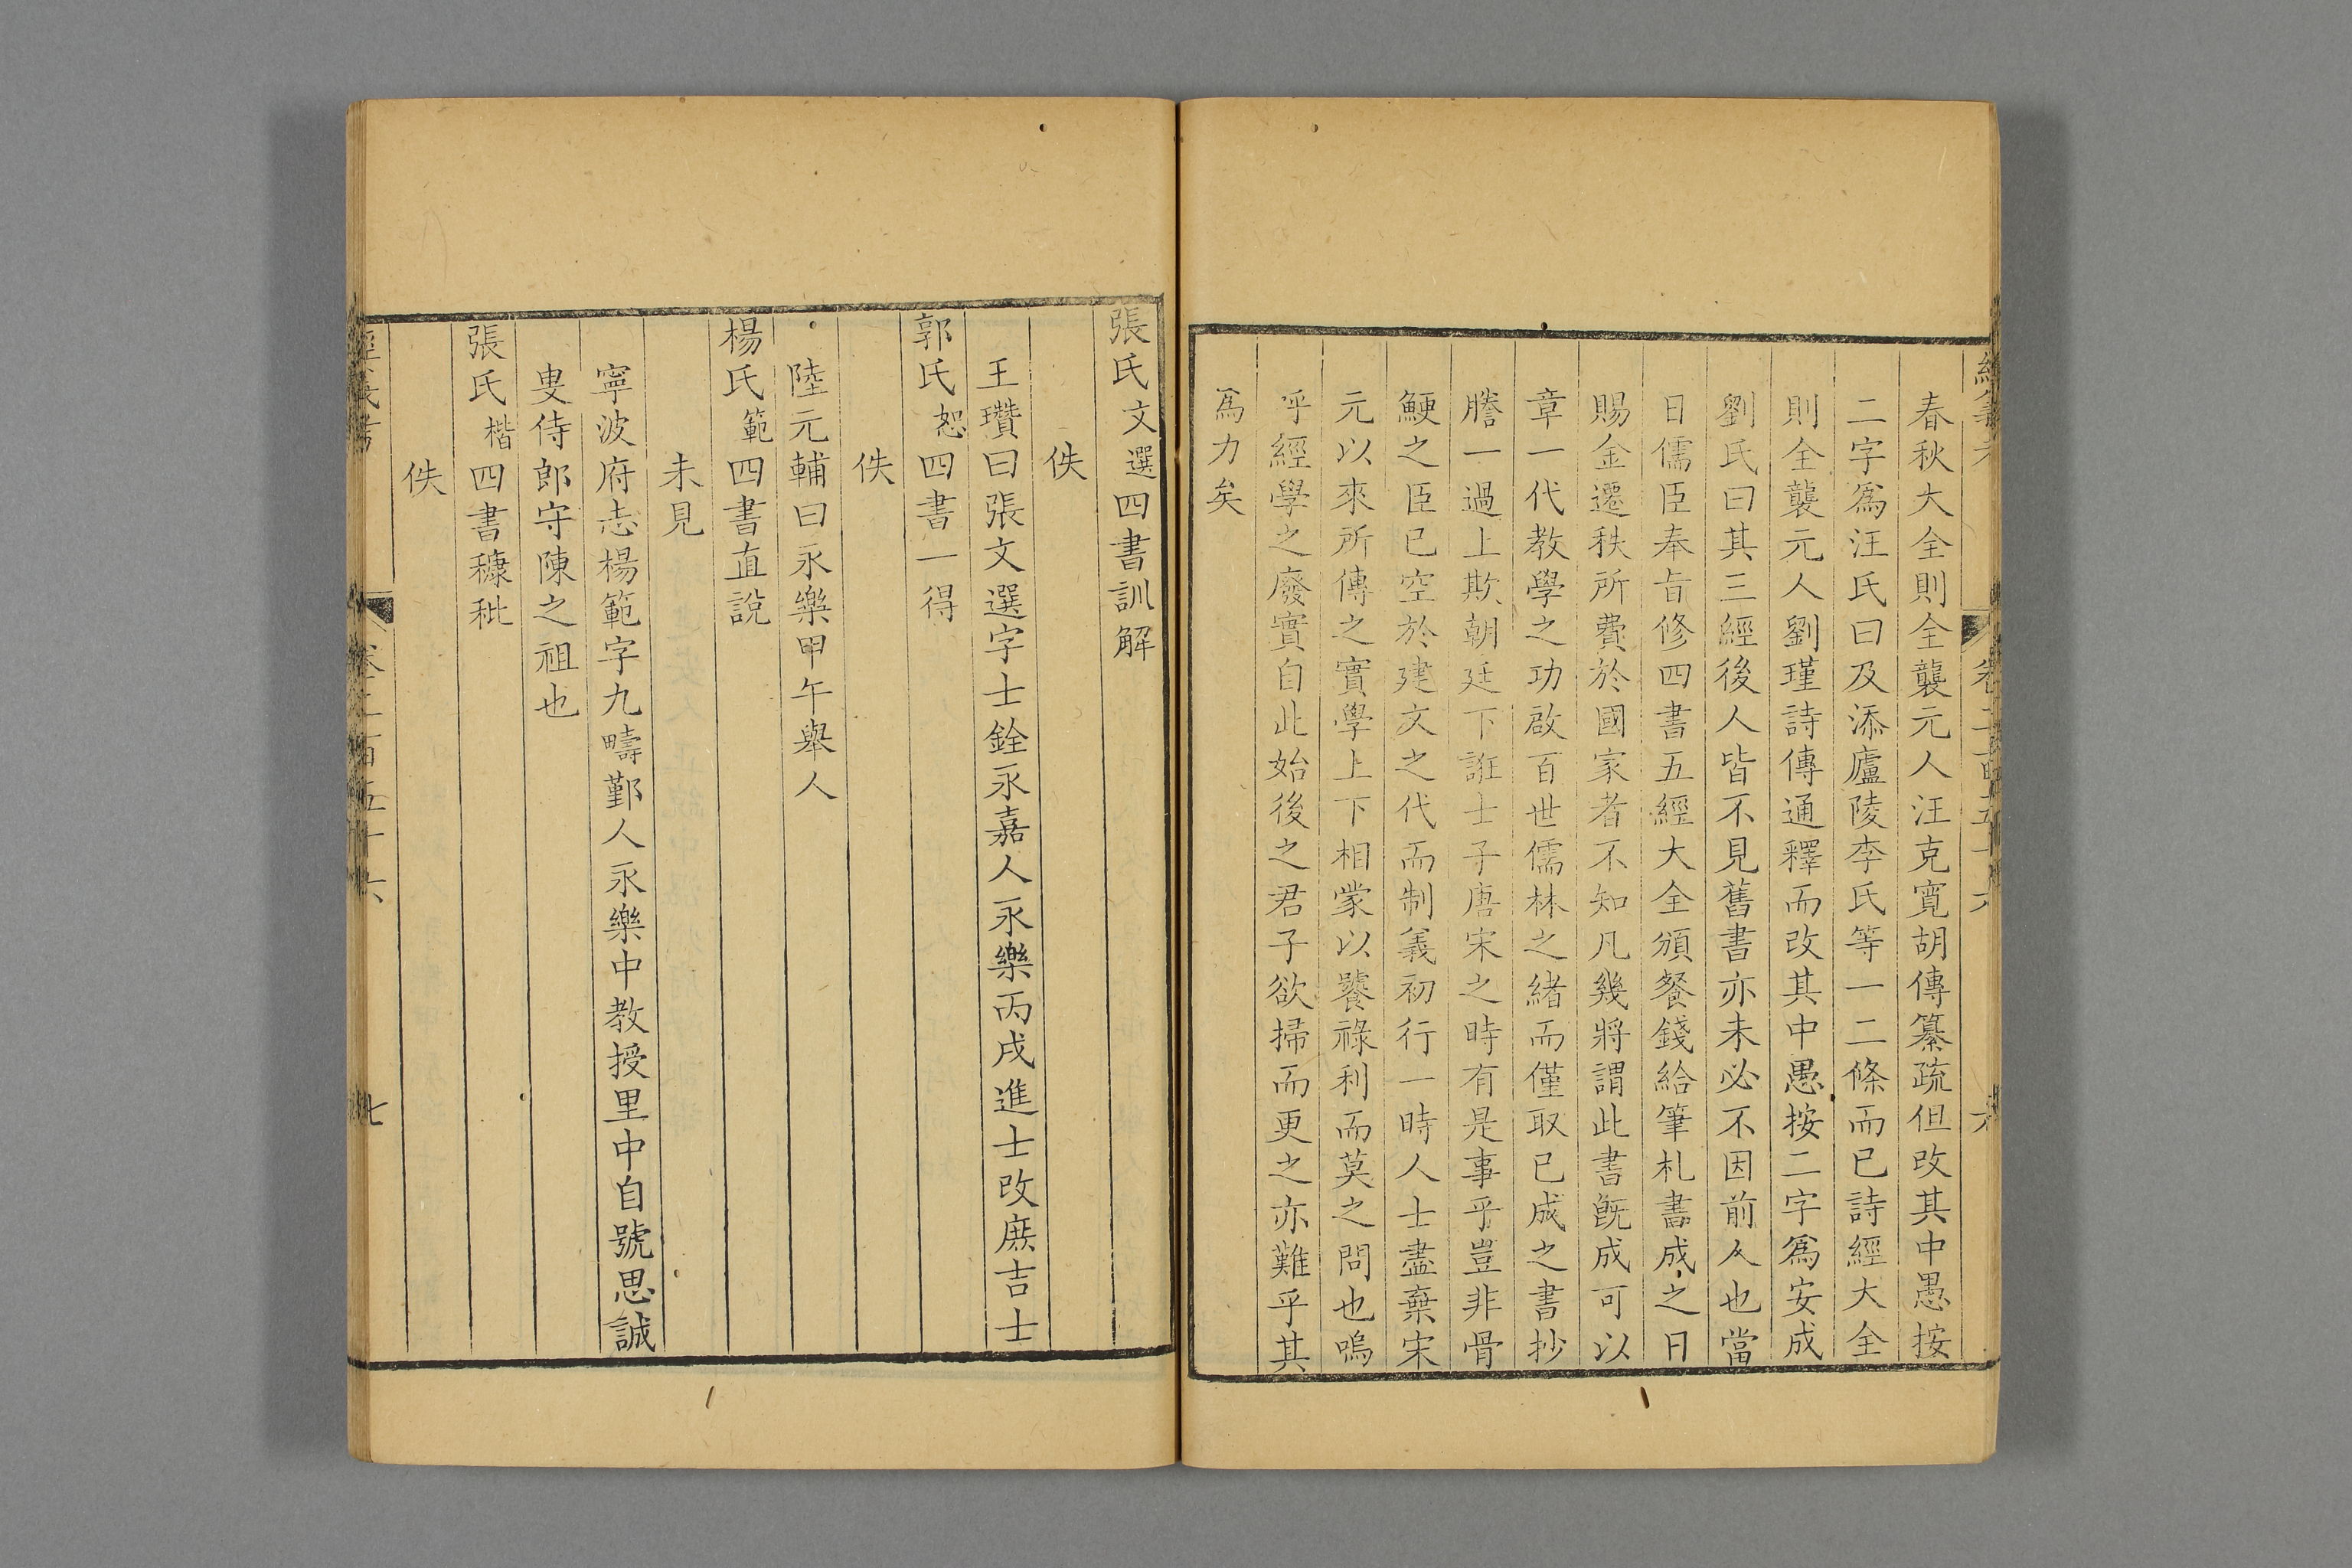 春秋大全則全襲元人汪克寬胡傳纂疏但改其中愚按
二字爲汪氏曰及添廬陵李氏等一二條而已詩經大全
則全襲元人劉瑾詩傳通釋而改其中愚按二字爲安成
劉氏曰其三經後人皆不見舊書亦未必不因前人也當
日儒臣奉旨修四書五經大全頒餐錢給筆札書成之日
賜金遷秩所費於國家者不知凡幾將謂此書旣成可以
章一代教學之功啟百世儒林之緒而僅取已成之書抄
謄一過上欺朝廷下誑士子唐宋之時有是事乎豈非骨
鯁之臣已空於建文之代而制義初行一時人士盡棄宋
元以來所傳之實學上下相蒙以饕祿利而莫之問也嗚
呼經學之廢實自此始後之君子欲掃而更之亦難乎其
爲力矣
張氏文選四書訓解
佚
王瓚曰張文選字士銓永嘉人永樂丙戌進士改庶吉士
郭氏恕四書一得
佚
陸元輔曰永樂甲午舉人
楊氏範四書直說
未見
寧波府志楊範字九疇鄞人永樂中教授里中自號思誠
叟侍郎守陳之祖也
張氏楷四書穅秕
佚
經義考 卷之二百五十六 七